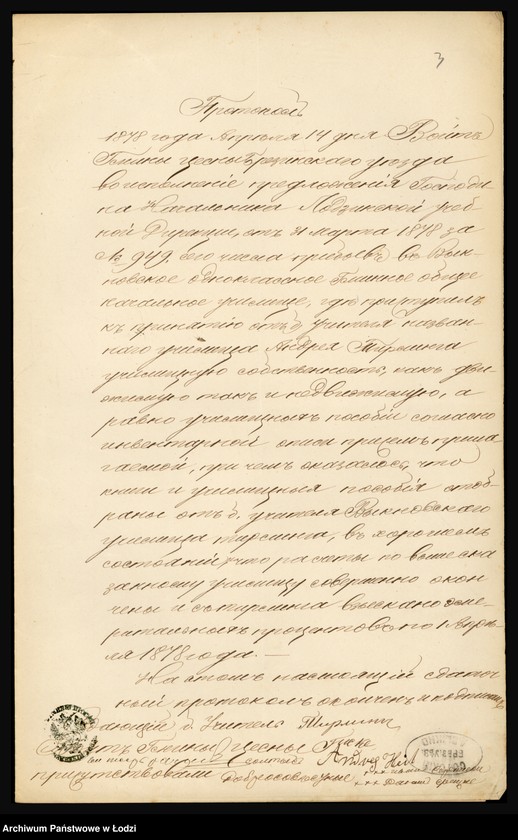 3
Протоколъ
1878 года Апреля 14 дня Войтъ
Гмины Брезинскаго уезда
во исполненіе предложенія Господи-
на Начальника Лодзинской учеб-
ной Дирекціи, отъ 31 марта 1878 за
№ 949 сего числа прибылъ въ
одноклассное Гминное обще
начальное училище, где приступилъ
къ принятію отъ б. учителя назван-
наго училища Андрея
училищную собственность, какъ дви-
жимую такъ и недвижимую, а
равно училищныхъ пособій согласно
инвентарной описи присемъ прила
гаемой, при чемъ оказалось, что
книги и училищныя пособія отоб-
раны отъ б. учителя
училища, въ хорошемъ
состояніи, что расчеты по вышеска
занному училищу совершенно окон
чены и съ взыскано
процентовъ по 1 Апре-
ля 1878 года. —
На этомъ настоящій сдаточ
ный протоколъ оконченъ и подписанъ
б. Учитель
Гмины
присутствовали
Archiwum Państwowe w Łodzi